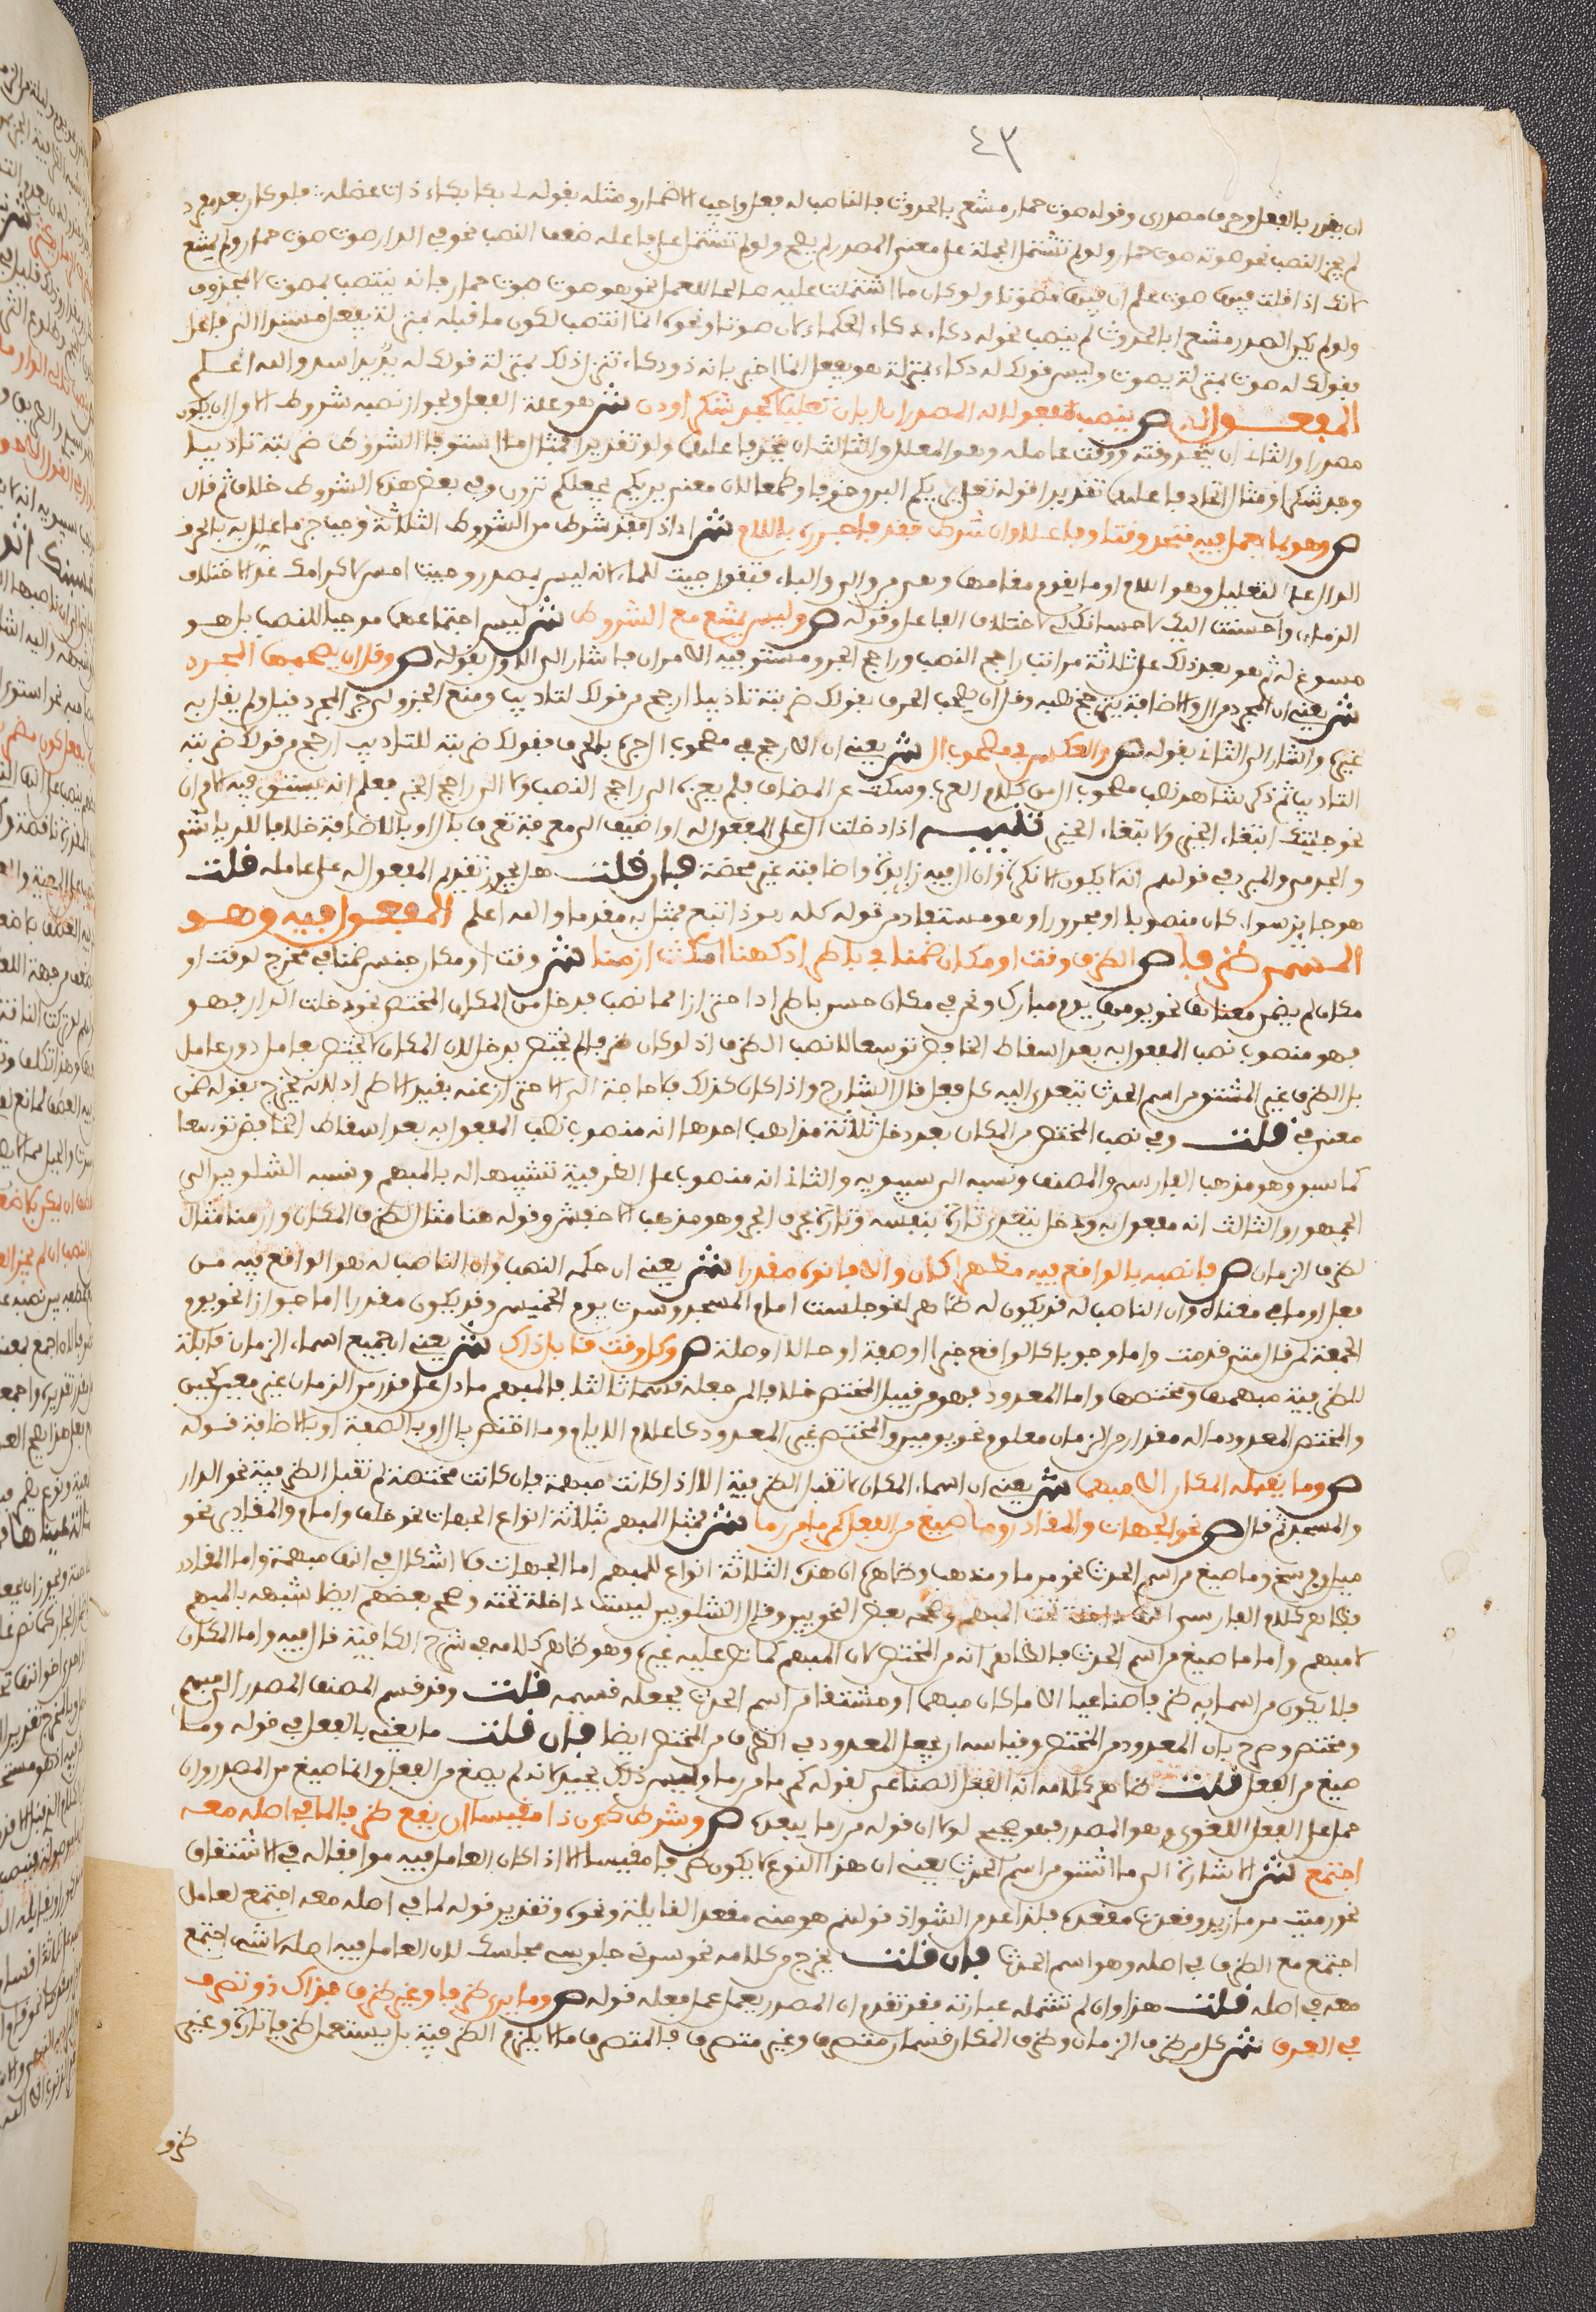 ٤٣
ان يقدر بالفعل وحرف مصدري وقوله صوت حمار مشعر بالحدوث فالناصب له فعل واجب الاضمار ومثله بقوله لي بكا بكاء ذات عضله فلو كان بعد مفرد
لم يجز النصب نحو صوته صوت حمار ولو لم تشتمل الجملة على معنى المصدر لم يصح ولو لم تشتمل على فاعله ضعف النصب نحو في الدار صوت صوت حمار ولم يمتنع
لانك اذا قلت فيها صوت علم ان فيها مصوتا ولو كان ما اشتملت عليه صالحا للعمل نحو هو مصوت صوت حمار فانه ينتصب بمصوت لا بمحذوف
ولو لم يكن المصدر مشعرا بالحدوث لم ينصب نحو له ذكاء ذكاء الحكماء لان صوتا ونحوه انما انتصب لكون ما قبله بمنزلة يفعل مسندا الى فاعل
فقولك له صوت بمنزلة يصوت وليس قولك له ذكاء بمنزلة هو يفعل انما اخبر بانه ذو ذكاء فنزل ذلك بمنزلة قولك له يد يد اسد والله اعلم
المفعول له ص ينصب مفعولا له المصدر ان ابان تعليلا كجد شكرا ودن ش هو علة الفعل ويجوز نصبه بشروط الاول ان يكون
مصدرا والثاني ان يتحد وقته ووقت عامله وهو المعلل والثالث ان يتحد فاعلهما ولو تقديرا فمثال ما استوفا الشروط ضربته تاديبا
وجد شكرا ومثال اتحاد فاعلهما تقديرا قوله تعلى يريكم البرق خوفا وطمعا لان معنى يريكم يجعلكم ترون وفي بعض هذه الشروط خلاف ثم قال
ص وهو بما يعمل فيه متحد وقتا وفاعلا وان شرط فقد فاجرره باللام ش اذا فقد شرط من الشروط الثلاثة وجب جر ما علل به بالحرف
الدال على التعليل وهو اللام او ما يقوم مقامها وهي من وفي والباء فتقول جيت للماء لانه ليس بمصدر وجيت امس لاكرامك غدا لاختلاف
الزمان واحسنت اليك لاحسانك الي لاختلاف الفاعل وقوله ص وليس يمتنع مع الشروط ش ليس اجتماعها موجبا للنصب بل هو
مسوغ له ثم هو بعد ذلك على ثلاثة مراتب راجح النصب وراجح الجر ومستو فيه الامران فاشار الى الاول بقوله ص وقل ان يصحبها المجرد
ش يعني ان المجرد من ال والاضافة يترجح نصبه وقل ان يصحب الحرف فقولك ضربته تاديبا ارجح من قولك لتاديب ومنع الجزولي جر المجرد قيل ولم يقل به
غيره واشار الى الثاني بقوله ص والعكس في مصحوب ال ش يعني ان الارجح في مصحوب ال جره بالحرف فقولك ضربته للتاديب ارجح من قولك ضربته
التاديب ثم ذكر شاهد نصب مصحوب ال من كلام العرب وسكت عن المضاف فلم يعزه الى راجح النصب ولا الى راجح الجر فعلم انه يستوي فيه الامران
نحو جيتك ابتغاء الخير ولا بتغاء الخير تنبيه اذا دخلت ال على المفعول له او اضيف الى معرفة تعرف بال او بالاضافة خلافا للرياشي
والجرمي والمبرد في قولهم انه لا يكون الا نكرة وان ال فيه زايدة واضافته غير محضة فان قلت هل يجوز تقديم المفعول له على عامله قلت
هو جايز سواء كان منصوبا او مجرورا وهو مستفاد من قوله كله هو ذا اقنع فمثل به مقدما والله اعلم المفعول فيه وهو
المسمى ظرفا ص الظرف وقت او مكان ضمنا في باطراد كهنا امكث ازمنا ش وقت او مكان جنس ضمنا في مخرج لوقت او
مكان لم يضمن معناها نحو يومنا يوم مبارك ونحو في مكان حسن باطراد احترازا مما نصب بدخل من المكان المختص نحو دخلت الدار فهو
فهو منصوب نصب المفعول به بعد اسقاط الخافض توسعا لا نصب الظرف اذ لو كان ظرفا لم يختص بدخل لان المكان لا يختص بعامل دون عامل
بل الظرف غير المشتق من اسم الحدث يتعدى اليه كل فعل قال الشارح واذا كان كذلك فلا حاجة الى الاحتراز عنه بقيد الاطراد لانه يخرج بقوله ضمن
معنى في قلت وفي نصب المختص من المكان بعد دخل ثلاثة مذاهب احدها انه منصوب نصب المفعول به بعد اسقاط الخافض توسعا
كما سبق وهو مذهب الفارسي والمصنف ونسبه الى سيبويه والثاني انه منصوب على الظرفية تشبيها له بالمبهم ونسبه الشلوبين الى
الجمهور والثالث انه مفعول به ودخل يتعدى تارة بنفسه وتارة بحرف الجر وهو مذهب الاخفش وقوله هنا مثال لظرف المكان وازمنا مثال
لظرف الزمان ص فانصبه بالواقع فيه مظهرا كان والا فانوه مقدرا ش يعني ان حكمه النصب وان الناصب له هو الواقع فيه من
فعل او ما في معناه وان الناصب له قد يكون له ظاهرا نحو جلست امام المسجد وسرت يوم الخميس وقد يكون مقدرا اما جوازا نحو يوم
الجمعة لمن قال متى قدمت واما وجوبا كالواقع خبرا او صفة او حالا او صلة ص وكل وقت قابل ذاك ش يعني ان جميع اسماء الزمان قابلة
للظرفية مبهمها ومختصها واما المعدود فهو من قبيل المختص خلافا لمن جعله قسما ثالثا فالمبهم ما دل على قدر من الزمان غير معين كحين
والمختص المعدود ما له مقدار من الزمان معلوم نحو يومين والمختص غير المعدود كاعلام الايام وما اختص بال او بالصفة او بالاضافة قوله
ص وما يقبله المكان الا مبهما ش يعني ان اسماء المكان لا تقبل الظرفية الا اذا كانت مبهمة فان كانت مختصة لم تقبل الظرفية نحو الدار
والمسجد ثم قال ص نحو الجهات والمقادير وما صيغ من الفعل كمرمى من رمى ش فمثل المبهم بثلاثة انواع الجهات نحو خلف وامام والمقادير نحو
ميل وفرسخ وما صيغ من اسم الحدث نحو مرمى ومذهب وظاهره ان هذه الثلاثة انواع للمبهم اما الجهات فلا اشكال في انها مبهمة واما المقادير
فظاهر كلام الفارسي انها داخلة تحت المبهم وصححه بعض النحويين وقال الشلوبين ليست داخلة تحته وصحح بعضهم ايضا شبهه بالمبهم
لا مبهم واما ما صيغ من اسم الحدث فالظاهر انه من المختص لا من المبهم كما نص عليه غيره وهو ظاهر كلامه في شرح الكافية قال فيه واما المكان
فلا يكون من اسمائه ظرفا صناعيا الا ما كان مبهما او مشتقا من اسم الحدث فجعله قسيمه قلت وقد قسم المصنف المصدر الى مبهم
ومختص وصرح بان المعدود من المختص وقياسه ان يجعل المعدود في الظرف من المختص ايضا فان قلت ما يعني بالفعل في قوله وما
صيغ من الفعل قلت ظاهر كلامه انه الفعل الصناعي لقوله كمرمى من رمى وليس ذلك بجيد لانه لم يصغ من الفعل وانما صيغ من المصدر وان
حمل على الفعل اللغوي وهو المصدر فهو صحيح لولا ان قوله من رمى يبعده ص وشرط كون ذا مقيسا ان يقع ظرفا لما في اصله معه
اجتمع ش الاشارة الى ما اشتق من اسم الحدث يعني ان هذا النوع لا يكون ظرفا مقيسا الا اذا كان العامل فيه موافقا له في الاشتقاق
نحو رميت مرمى زيد وقعدت مقعده فلذا عد من الشواذ قولهم هو مني مقعد القابلة ونحوه وتقدير قوله لما في اصله معه اجتمع لعامل
اجتمع مع الظرف في اصله وهو اسم الحدث فان قلت يخرج من كلامه نحو سرني جلوسي مجلسك لان العامل فيه اصله لا شيء اجتمع
معه في اصله قلت هذا وان لم تشمله عبارته فقد تقدم ان المصدر يعمل عمل فعله قوله ص وما يرى ظرفا وغير ظرف فذاك ذو تصرف
في العرف ش كل من ظرف الزمان وظرف المكان قسمان متصرف وغير متصرف فالمتصرف ما لا يلزم الظرفية بل يستعمل ظرفا تارة وغير
ظرف